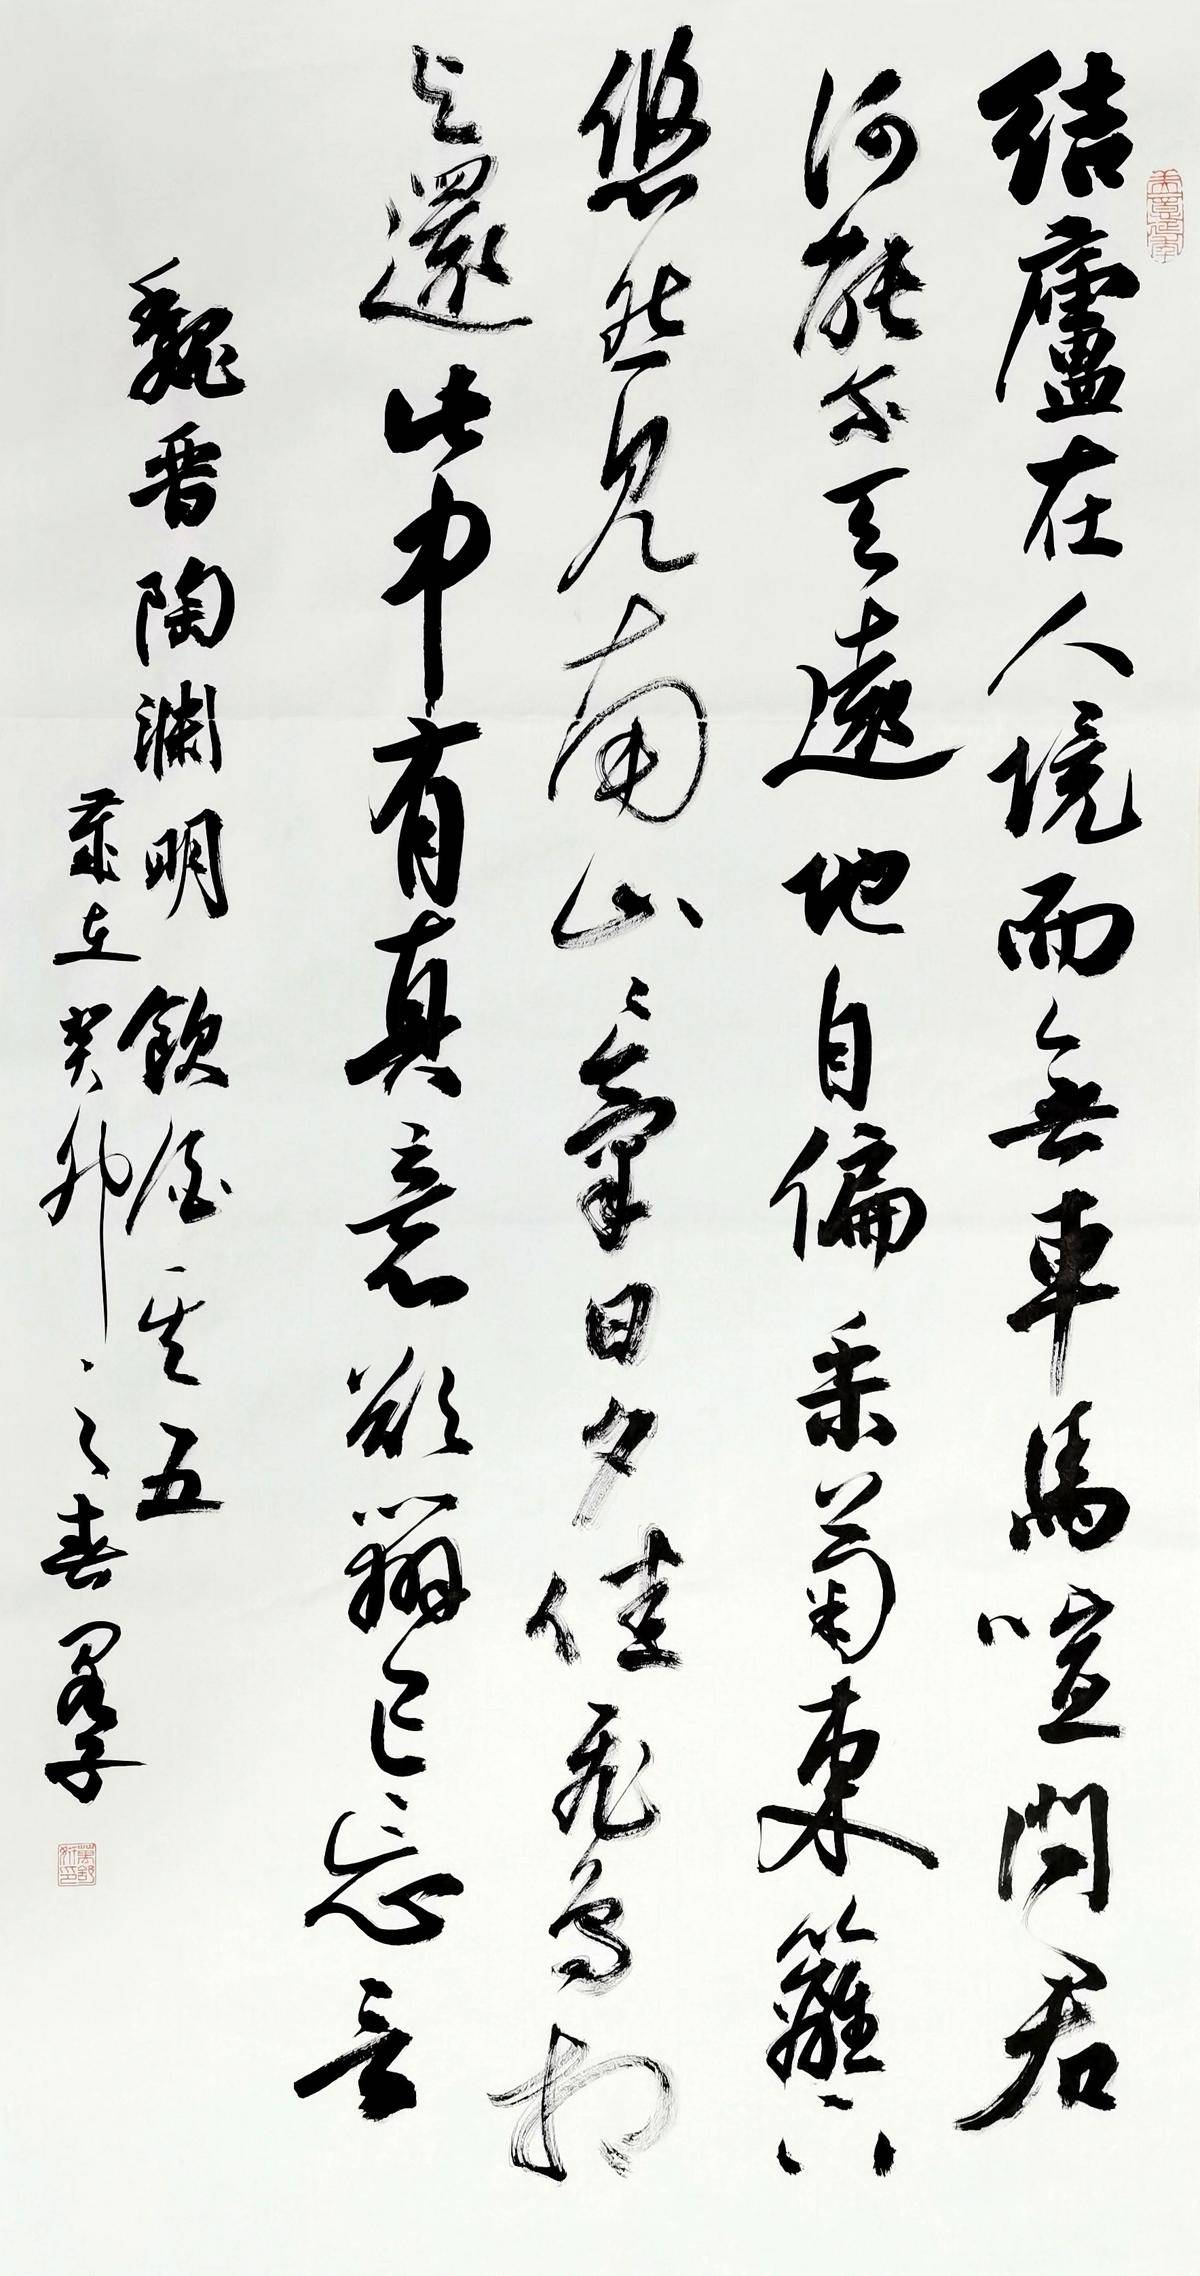 結廬在人境而無車馬喧問君
何能尔心遠地自偏采菊東籬下
悠然見南山〻氣日夕佳飛鳥相
与還此中有真意欲辯已忘言
魏晋陶渊明飲酒其五
歲在癸卯之春